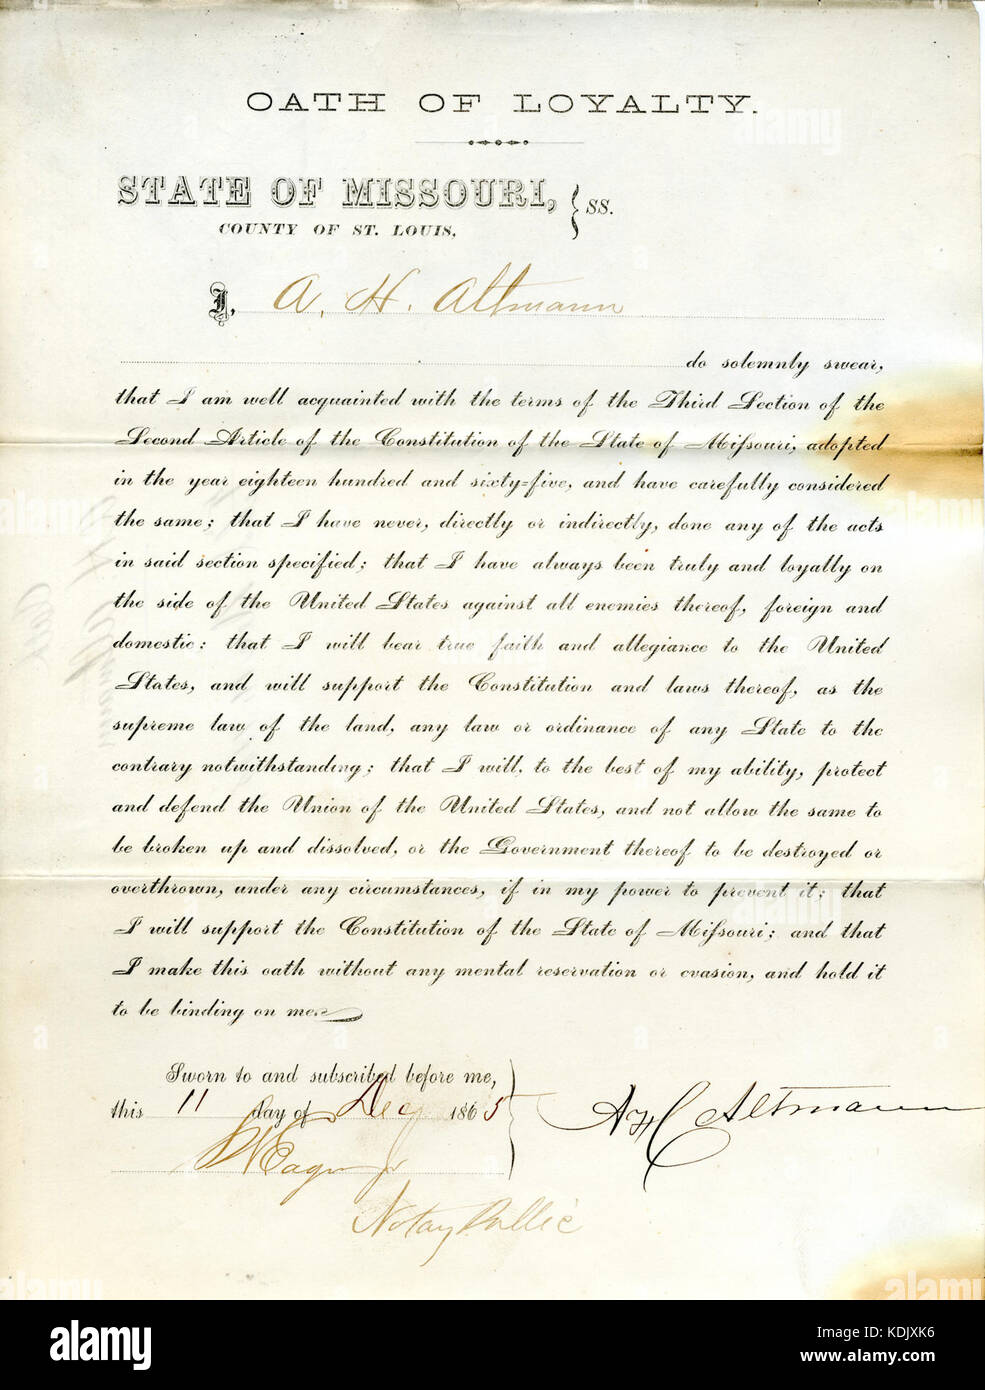 OATH OF LOYALTY.
STATE OF MISSOURI, } SS.
COUNTY OF ST. LOUIS,
I, A. H. Altmann
do solemnly swear,
that I am well acquainted with the terms of the Third Section of the
Second Article of the Constitution of the State of Miſsouri, adopted
in the year eighteen hundred and sixty=five, and have carefully considered
the same; that I have never, directly or indirectly, done any of the acts
in said section specified; that I have always been truly and loyally on
the side of the United States against all enemies thereof, foreign and
domestic: that I will bear true faith and allegiance to the United
States, and will support the Constitution and laws thereof, as the
supreme law of the land, any law or ordinance of any State to the
contrary notwithstanding; that I will, to the best of my ability, protect
and defend the Union of the United States, and not allow the same to
be broken up and dissolved, or the Government thereof to be destroyed or
overthrown, under any circumstances, if in my power to prevent it; that
I will support the Constitution of the State of Miſsouri; and that
I make this oath without any mental reservation or evasion, and hold it
to be binding on me.
Sworn to and subscribed before me,
this 11 day of Dec 1865
Altmann
Notary Public
alamy
Image ID: KDJXK6
www.alamy.com